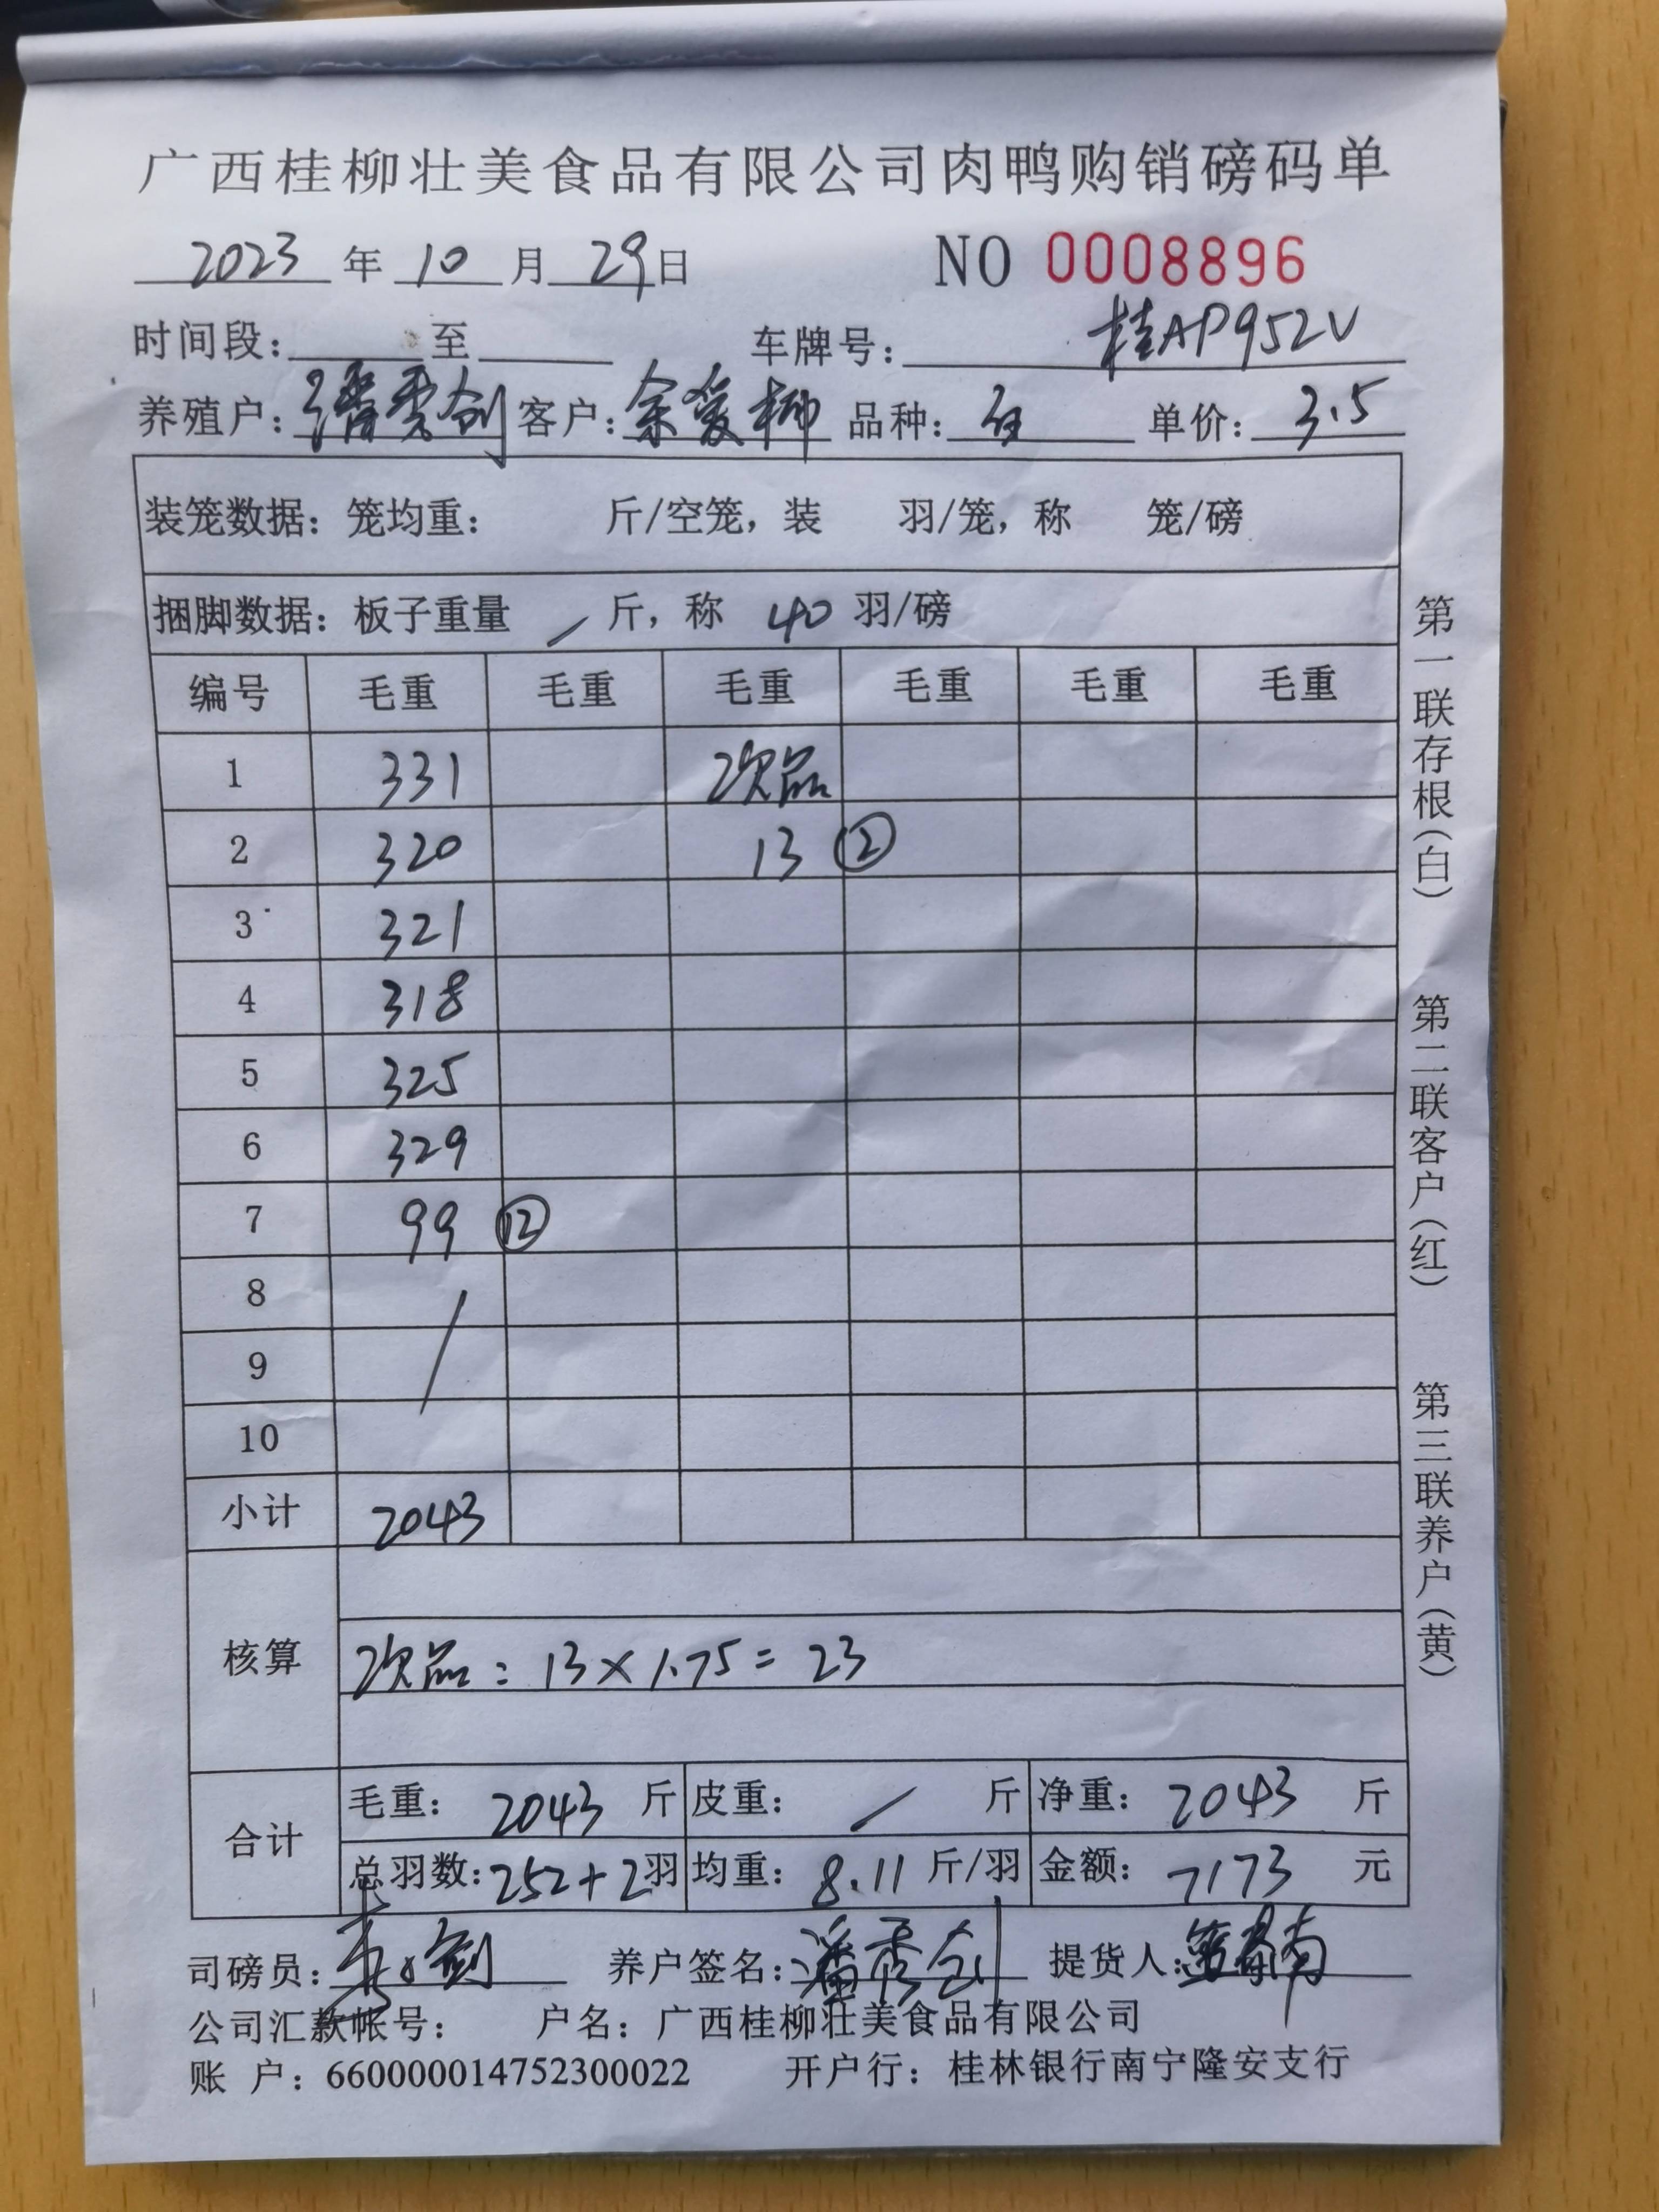 广西桂柳壮美食品有限公司肉鸭购销磅码单
2023 年 10 月 29 日 NO 0008896
时间段: 至 车牌号: 桂AP952V
养殖户: 潘秀创 客户: 余爱柳 品种: 白 单价: 3.5
装笼数据: 笼均重: 斤/空笼, 装 羽/笼, 称 笼/磅
捆脚数据: 板子重量 / 斤, 称 40 羽/磅
编号 毛重 毛重 毛重 毛重 毛重 毛重
1 331 次品
2 320 13 ②
3 321
4 318
5 325
6 329
7 99 ⑫
8 /
9
10
小计 2043
核算 次品: 13×1.75=23
合计 毛重: 2043 斤 皮重: / 斤 净重: 2043 斤
总羽数: 252+2 羽 均重: 8.11 斤/羽 金额: 7173 元
司磅员: 养户签名: 潘秀创 提货人:
公司汇款帐号: 户名: 广西桂柳壮美食品有限公司
账 户: 660000014752300022 开户行: 桂林银行南宁隆安支行
第一联存根(白) 第二联客户(红) 第三联养户(黄)